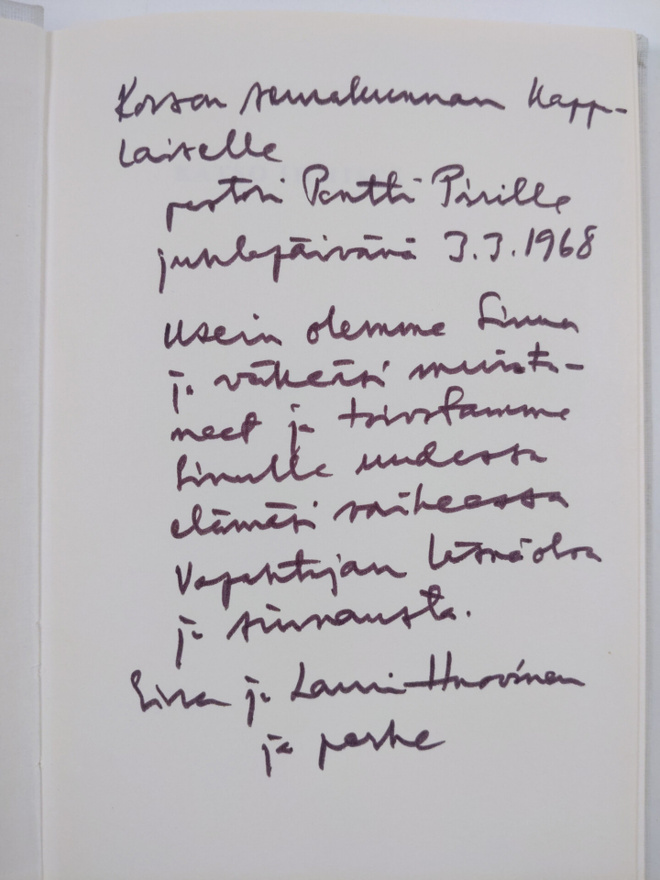 seurakunnan Kapp-
laiselle
pastori Pentti Pirille
juhlapäivänä 3.3.1968
Usein olemme Sinua
ja väkeäsi muista-
neet ja toivotamme
Sinulle uudessa
elämäsi vaiheessa
Vapahtajan läsnäoloa
ja siunausta.
Liisa ja Lauri Huovinen
ja perhe